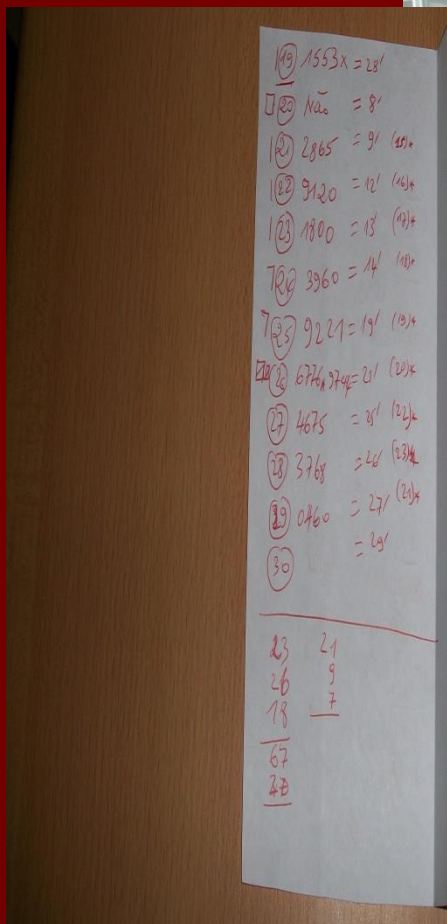 19 1553x = 28'
20 Não = 8'
21 2865 = 9' (15)*
22 9120 = 12' (16)*
23 1800 = 13' (17)*
24 3960 = 14' (18)*
25 9221 = 19' (19)*
26 6776 x = 21' (20)*
27 4675 = 25' (22)*
28 3768 = 26' (23)*
29 0460 = 27' (21)*
30 = 29'
23 21
26 9
18 7
67